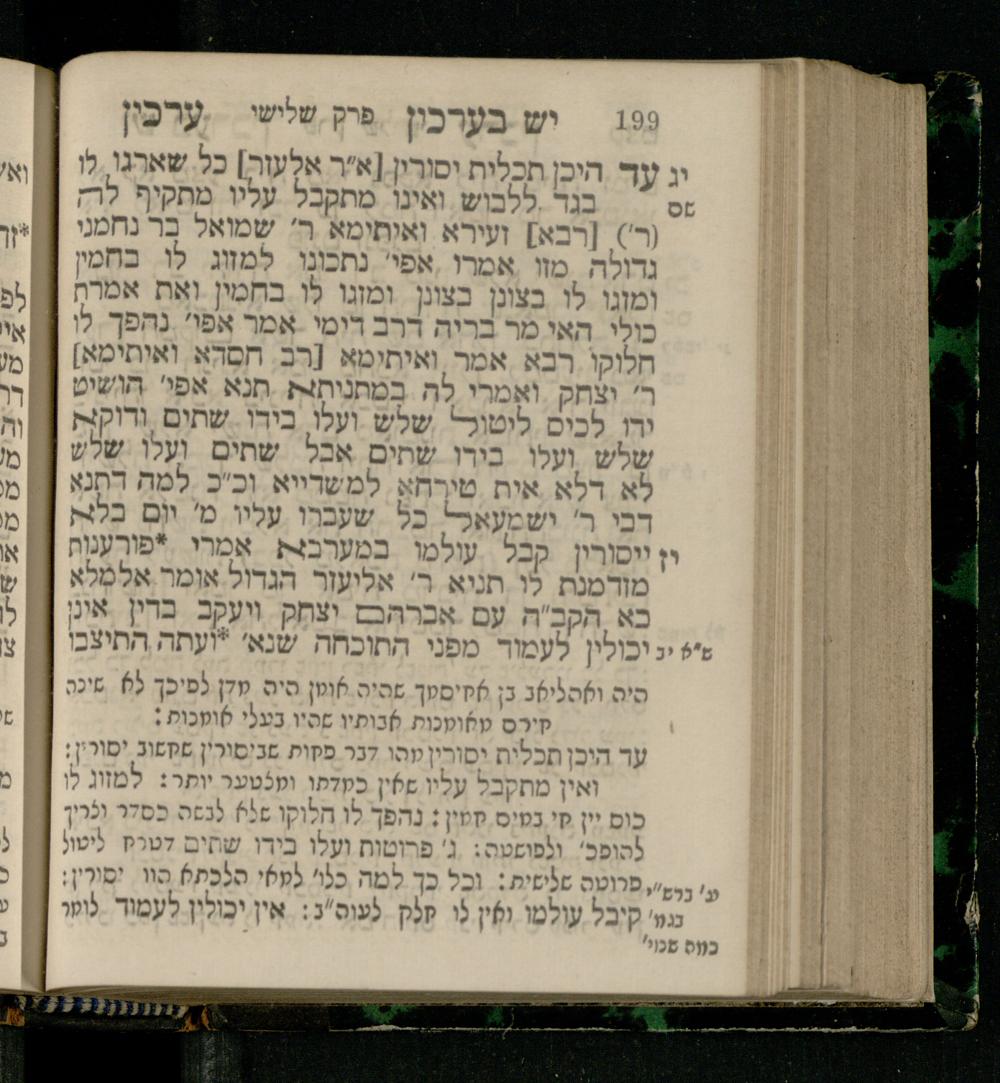 199 יש בערכין פרק שלישי ערכין
יג עד היכן תכלית יסורין [א״ר אלעזר] כל שארגו לו
שם בגד ללבוש ואינו מתקבל עליו מתקיף לה
(ר׳) [רבא] זעירא ואיתימא ר׳ שמואל בר נחמני
גדולה מזו אמרו אפי׳ נתכוונו למזוג לו בחמין
ומזגו לו בצונן בצונן ומזגו לו בחמין ואת אמרת
כולי האי מר בריה דרבדימי אמר אפי׳ נהפך לו
חלוקו רבא אמר ואיתימא [רב חסדא ואיתימא]
ר׳ יצחק ואמרי לה במתניתא תנא אפי׳ הושיט
ידו לכיס ליטול שלש ועלו בידו שתים ודוקא
שלש ועלו בידו שתים אבל שתים ועלו שלש
לא דלא אית טירחא למשדייא וכ״כ למה דתנא
דבי ר׳ ישמעאל כל שעברו עליו מ׳ יום בלא
יז ייסורין קבל עולמו במערבא אמרי *פורענות
מזדמנת לו תניא ר׳ אליעזר הגדול אומר אלמלא
בא הקב״ה עם אברהם יצחק ויעקב בדין אינן
ש״א יב יכולין לעמוד מפני התוכחה שנא׳ *ועתה התיצבו
היה ואהליאב בן אחיסמך שהיה אומן היה מדן לפיכך לא שינה
חירם מאומנות אבותיו שהיו בעלי אומנות :
עד היכן תכלית יסורין מהו דבר פחות שביסורין שחשוב יסורין :
ואין מתקבל עליו שאין כמדתו ומצטער יותר : למזוג לו
כוס יין חי במים חמין : נהפך לו חלוקו שלא לבשה כסדר וצריך
להופכ׳ ולפושטה : ג׳ פרוטות ועלו בידו שתים דטרח ליטול
ע׳ ברש״י פרוטה שלישית : וכל כך למה כלו׳ למאי הלכתא הוו יסורין :
בגמ׳ קיבל עולמו ואין לו חלק לעוה״ב : אין יכולין לעמוד לומר